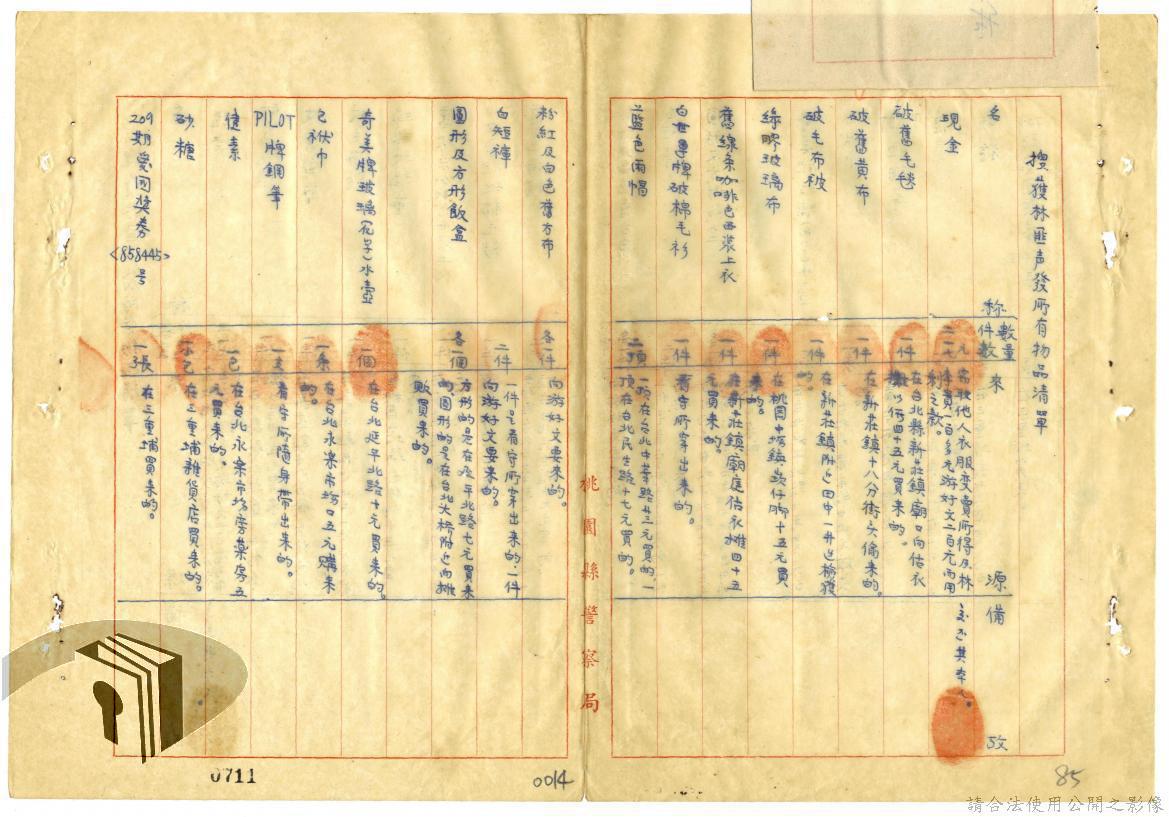 搜獲林匪声發所有物品清單
名
称
件數
數量
來
源
備
攷
現金
破舊毛毯
一件
在台北縣新庄鎮廟口向估衣
破舊黃布
一件
在新莊鎮十八分街头偷来的。
破毛布被
一件
在新庄鎮附近田中
的。
綠膠玻璃布
一件
在桃園中坜鎮
十五元買
来的。
舊線条咖啡色西裝上衣
一件
在新庄鎮廟庭估衣摊四十五
元買来的。
白
牌破棉毛衫
一件
看守所穿出来的。
藍色雨帽
二頂
一頂在台北中華路廿三元買的,一
頂在台北民生路十七元買的。
粉紅及白色舊方布
各一件
向游好文要来的。
白短褲
二件
一件是看守所穿出来的,一件
向游好文要来的。
圓形及方形飯盒
各一個
方形的是在延平北路七元買来
的,圓形的是在台北大橋附近向摊
販買来的。
奇美牌玻璃(花子)水壺
一個
在台北延平北路十元買来的。
包袱巾
一条
在台北永楽市場口五元購来
的。
PILOT牌鋼筆
一支
看守所隨身帶出来的。
健素
一包
在台北永楽市場旁葯房五
元買来的。
砂糖
一小包
在三重埔雜貨店買来的。
209期愛國獎券
<858445>
号
一張
在三重埔買来的。
桃園縣警察局
0711
0014
85
請合法使用公開之影像